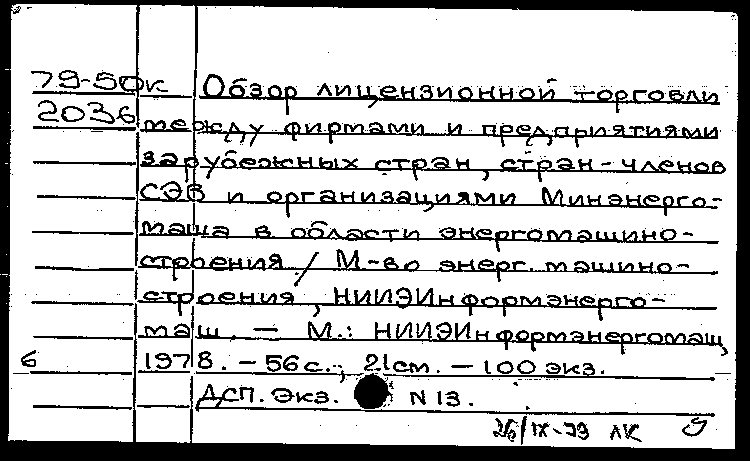 79-50к Обзор лицензионной торговли
2036 между фирмами и предприятиями
зарубежных стран, стран-членов
СЭВ и организациями Минэнерго-
маша в области энергомашино-
строения / М-во энерг. машино-
строения, НИИЭИнформэнерго-
маш. — М.: НИИЭИнформэнергомаш,
6 1978. - 56 с.; 21см. — 100 экз.
ДСП. Экз. N 13.
26/IX-79 ЛК